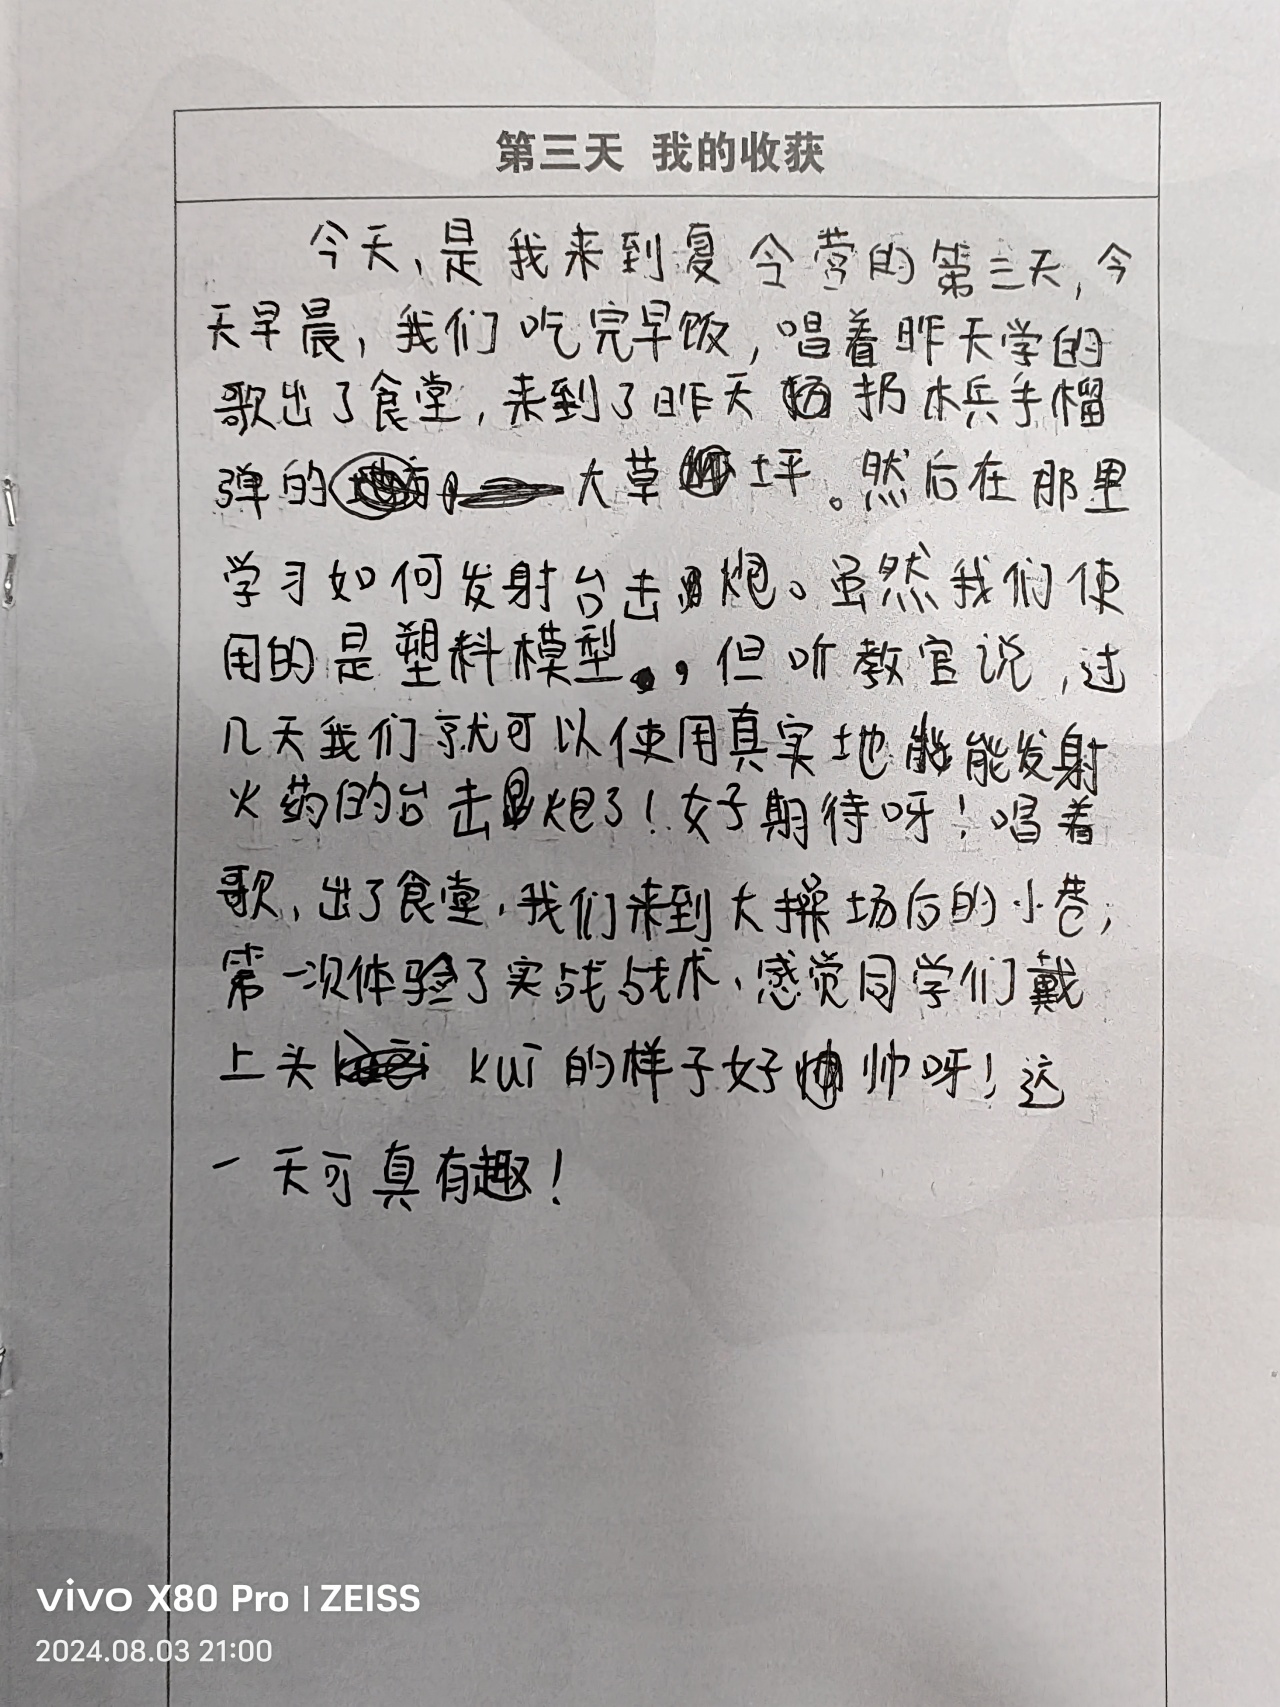 第三天 我的收获
今天,是我来到夏令营的第三天,今
天早晨,我们吃完早饭,唱着昨天学的
歌出了食堂,来到了昨天扔木兵手榴
弹的大草坪。然后在那里
学习如何发射台击炮。虽然我们使
用的是塑料模型,但听教官说,过
几天我们就可以使用真实地能发射
火药的台击炮了!好期待呀!唱着
歌,出了食堂,我们来到大操场后的小巷,
第一次体验了实战战术,感觉同学们戴
上头kuī的样子好帅呀!这
一天可真有趣!
vivo X80 Pro | ZEISS
2024.08.03 21:00